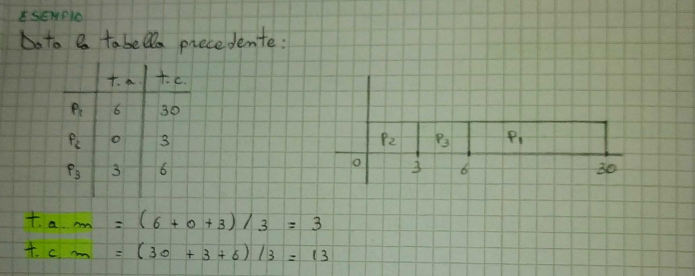 ESEMPIO
Data la tabella precedente:
t.a t.c.
P1 6 30
P2 0 3
P3 3 6
P2 P3 P1
0 3 6 30
t.a.m = (6 + 0 + 3) / 3 = 3
t.c.m = (30 + 3 + 6) / 3 = 13